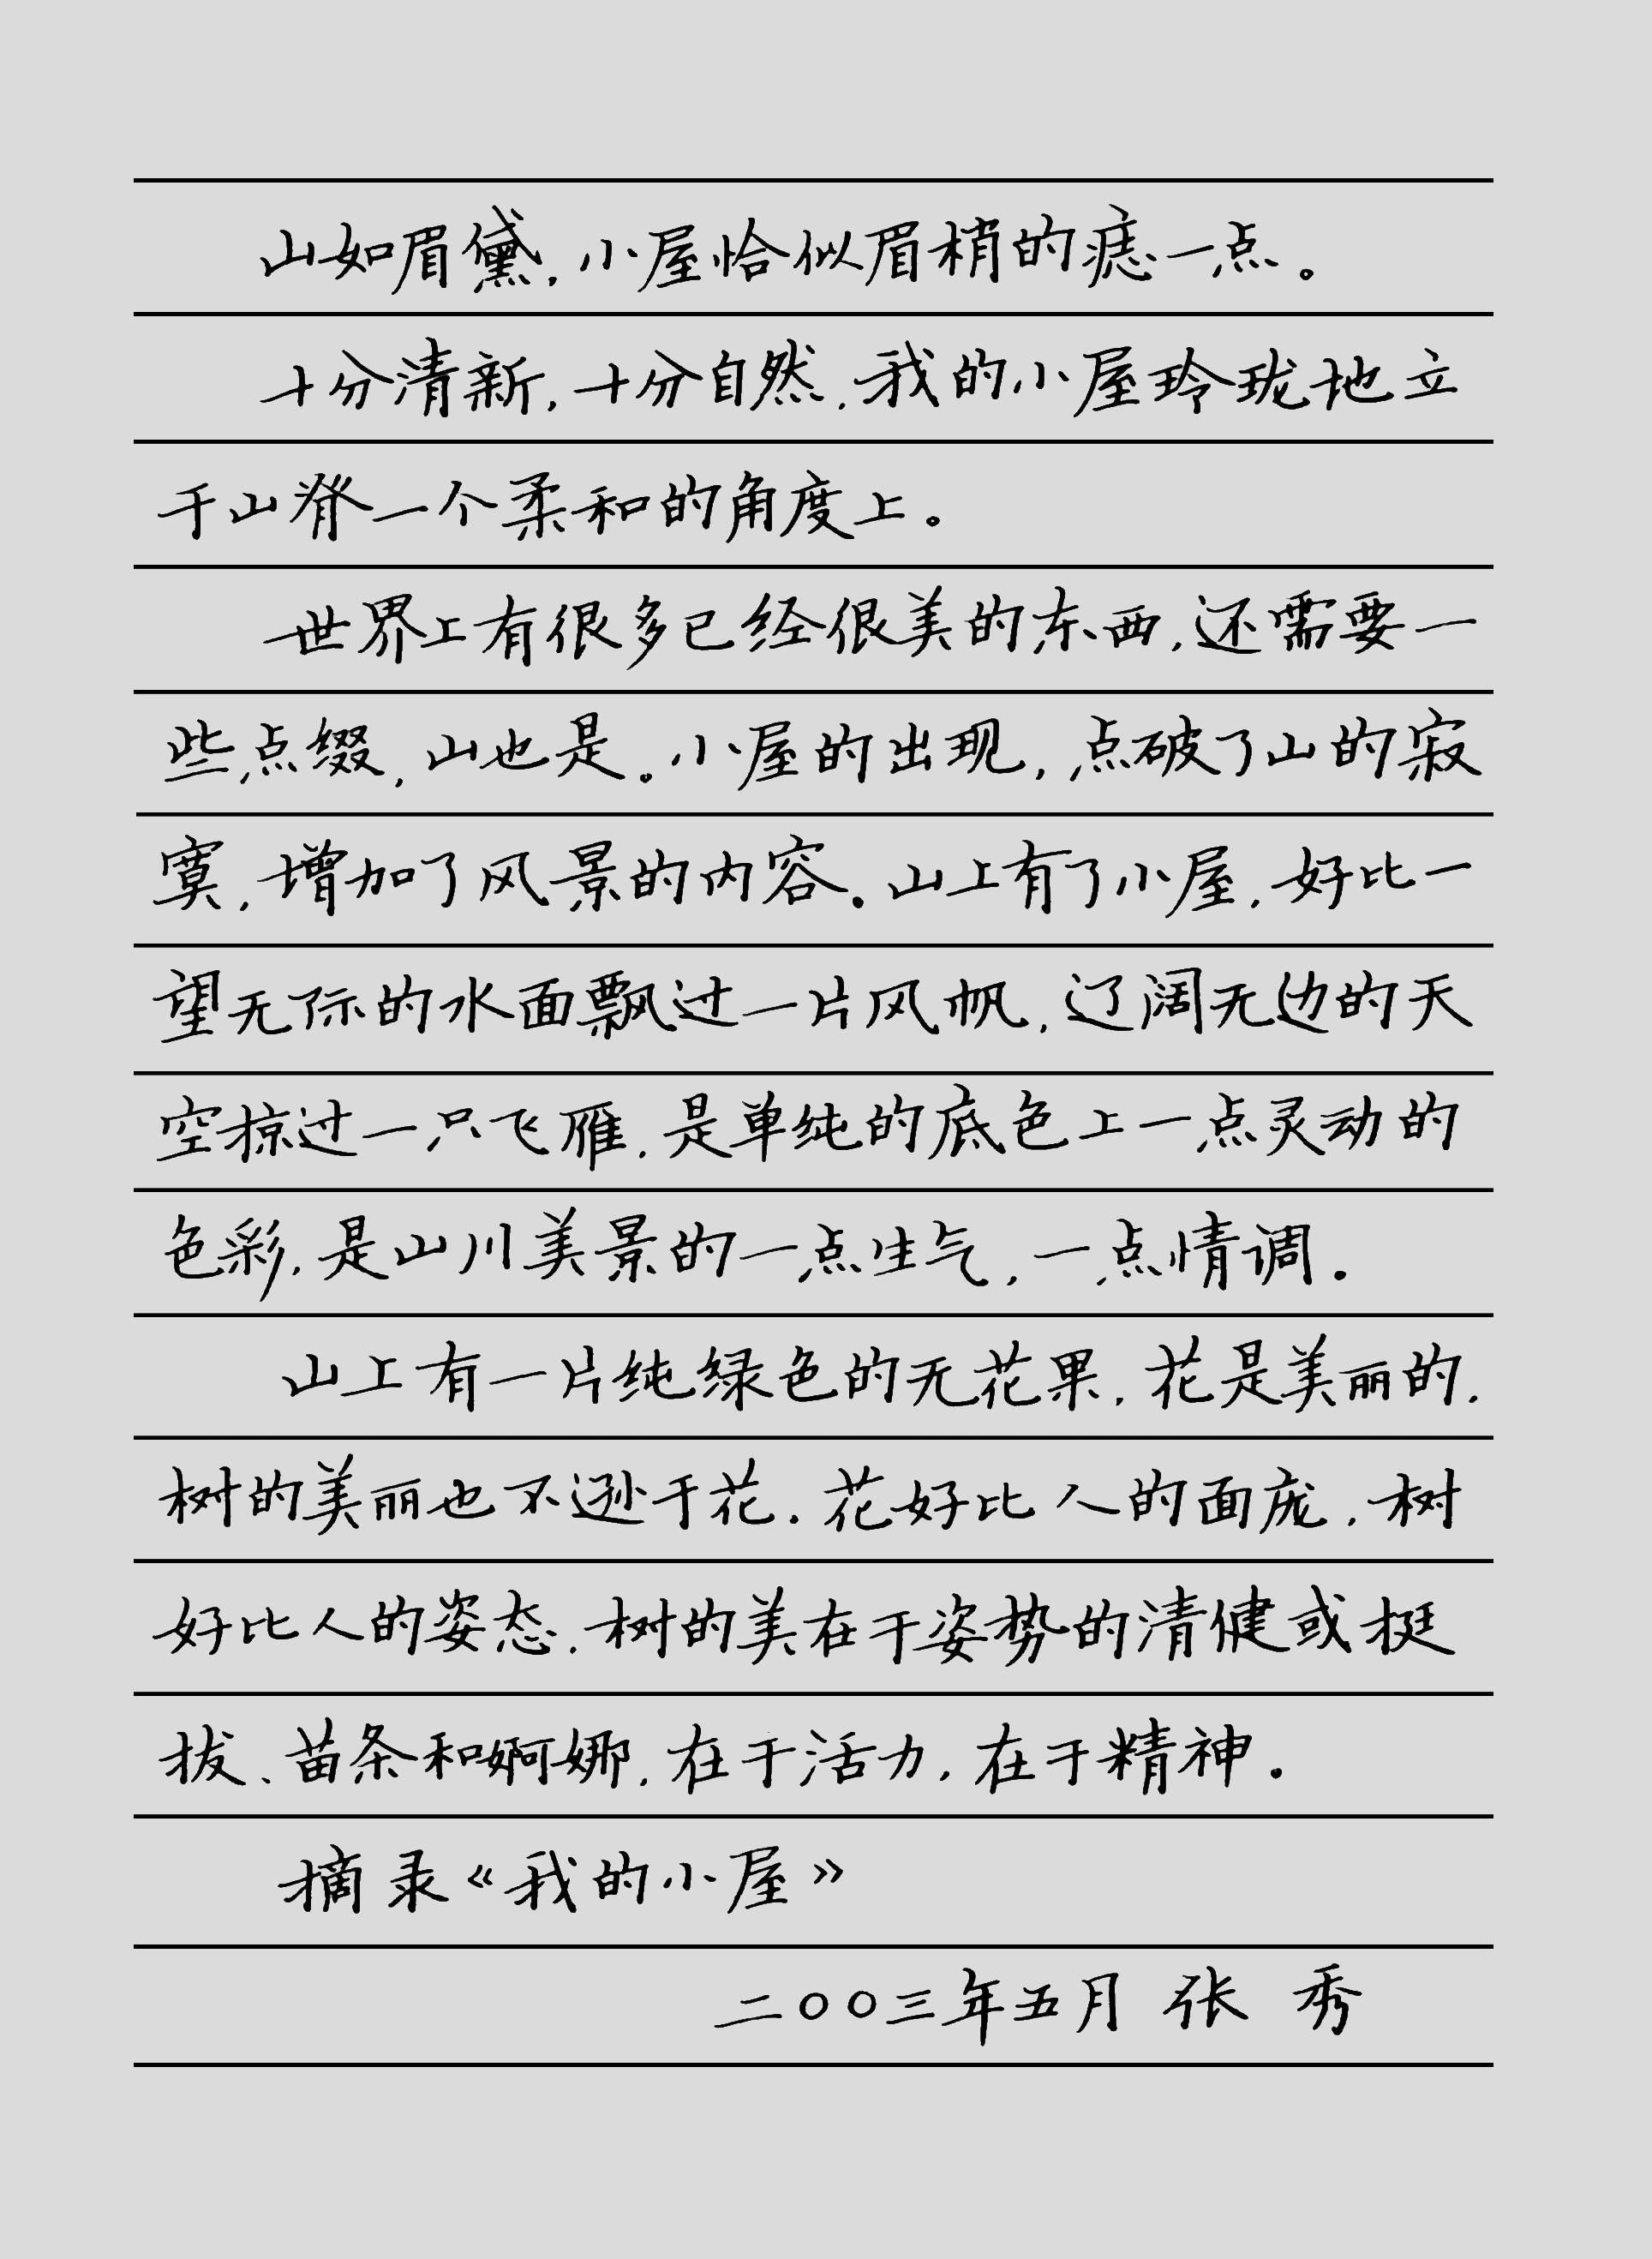 山如眉黛，小屋恰似眉梢的痣一点。
十分清新，十分自然，我的小屋玲珑地立
于山脊一个柔和的角度上。
世界上有很多已经很美的东西，还需要一
些点缀，山也是。小屋的出现，点破了山的寂
寞，增加了风景的内容。山上有了小屋，好比一
望无际的水面飘过一片风帆，辽阔无边的天
空掠过一只飞雁，是单纯的底色上一点灵动的
色彩，是山川美景的一点生气，一点情调.
山上有一片纯绿色的无花果，花是美丽的，
树的美丽也不逊于花.花好比人的面庞，树
好比人的姿态.树的美在于姿势的清健或挺
拔、苗条和婀娜，在于活力，在于精神.
摘录《我的小屋》
二〇〇三年五月 张 秀